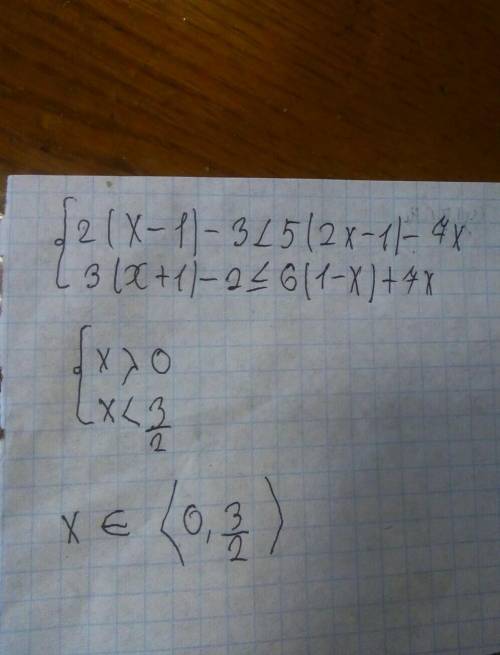 {2(x-1)-3<5(2x-1)-7x
3(x+1)-2≤6(1-x)+7x
{x>0
x<3/2
x∈⟨0,3/2⟩